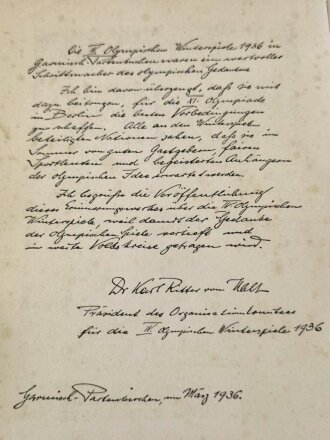 Die IV. Olympischen Winterspiele 1936 in
Garmisch-Partenkirchen waren ein wertvoller
Schrittmacher des olympischen Gedankens.
Ich bin davon überzeugt, daß sie mit
dazu beitragen, für die XI. Olympiade
in Berlin die besten Vorbedingungen
zu schaffen. Alle an den Winterspielen
beteiligten Nationen sahen, daß sie im
Sommer von guten Gastgebern, fairen
Sportleuten und begeisterten Anhängern
der olympischen Idee erwartet werden.
Ich begrüße die Veröffentlichung
dieses Erinnerungswerkes über die IV. Olympischen
Winterspiele, weil damit der Gedanke
der Olympischen Spiele vertieft und
in weite Volkskreise getragen wird.
Dr Karl Ritter von Halt
Präsident des Organisationskomitees
für die IV. Olympischen Winterspiele 1936
Garmisch-Partenkirchen, im März 1936.